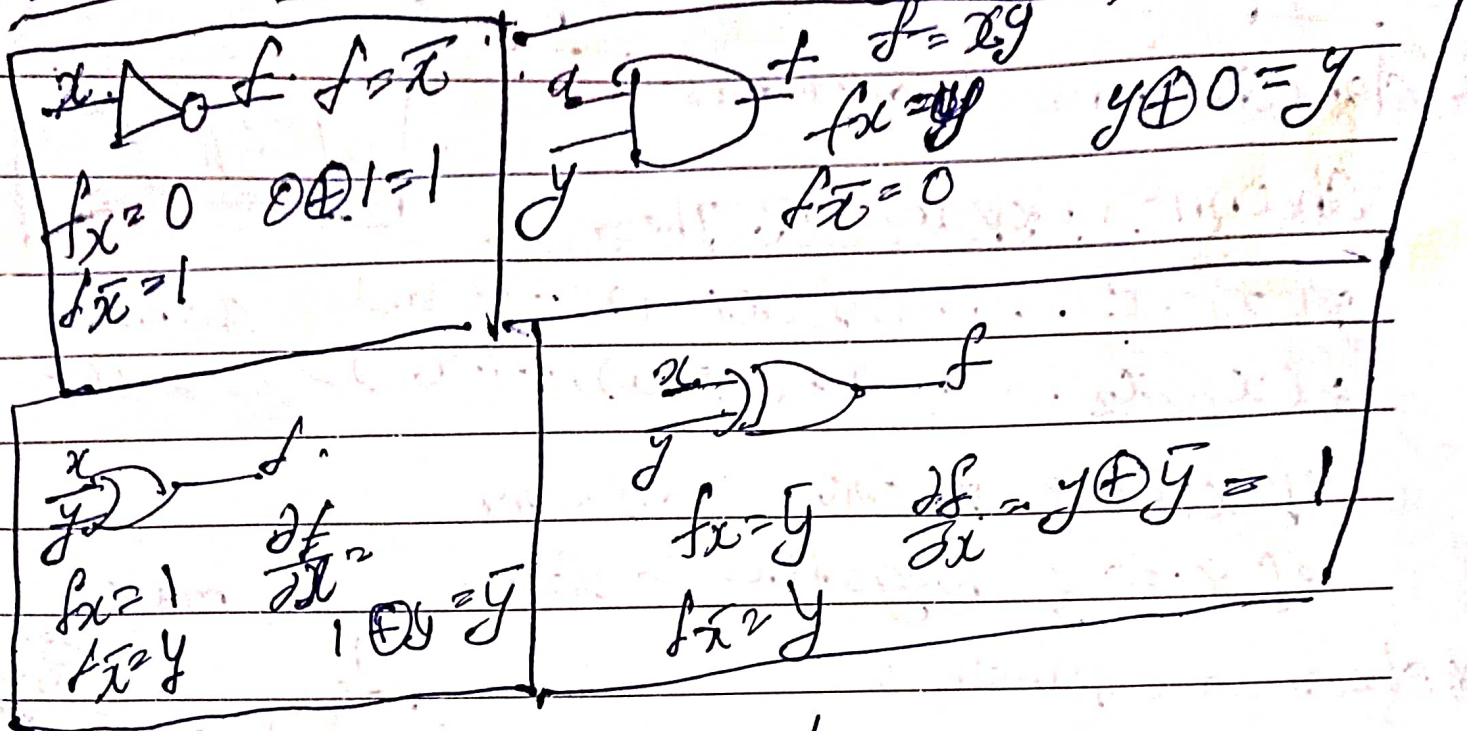 x f f = x̅
fx = 0 0⊕1 = 1
fx̅ = 1
x f f = xy
y fx = y y⊕0 = y
fx̅ = 0
x f
y
∂f/∂x =
fx = 1 1⊕y = y̅
fx̅ = y
x f
y
fx = y̅ ∂f/∂x = y⊕y̅ = 1
fx̅ = y